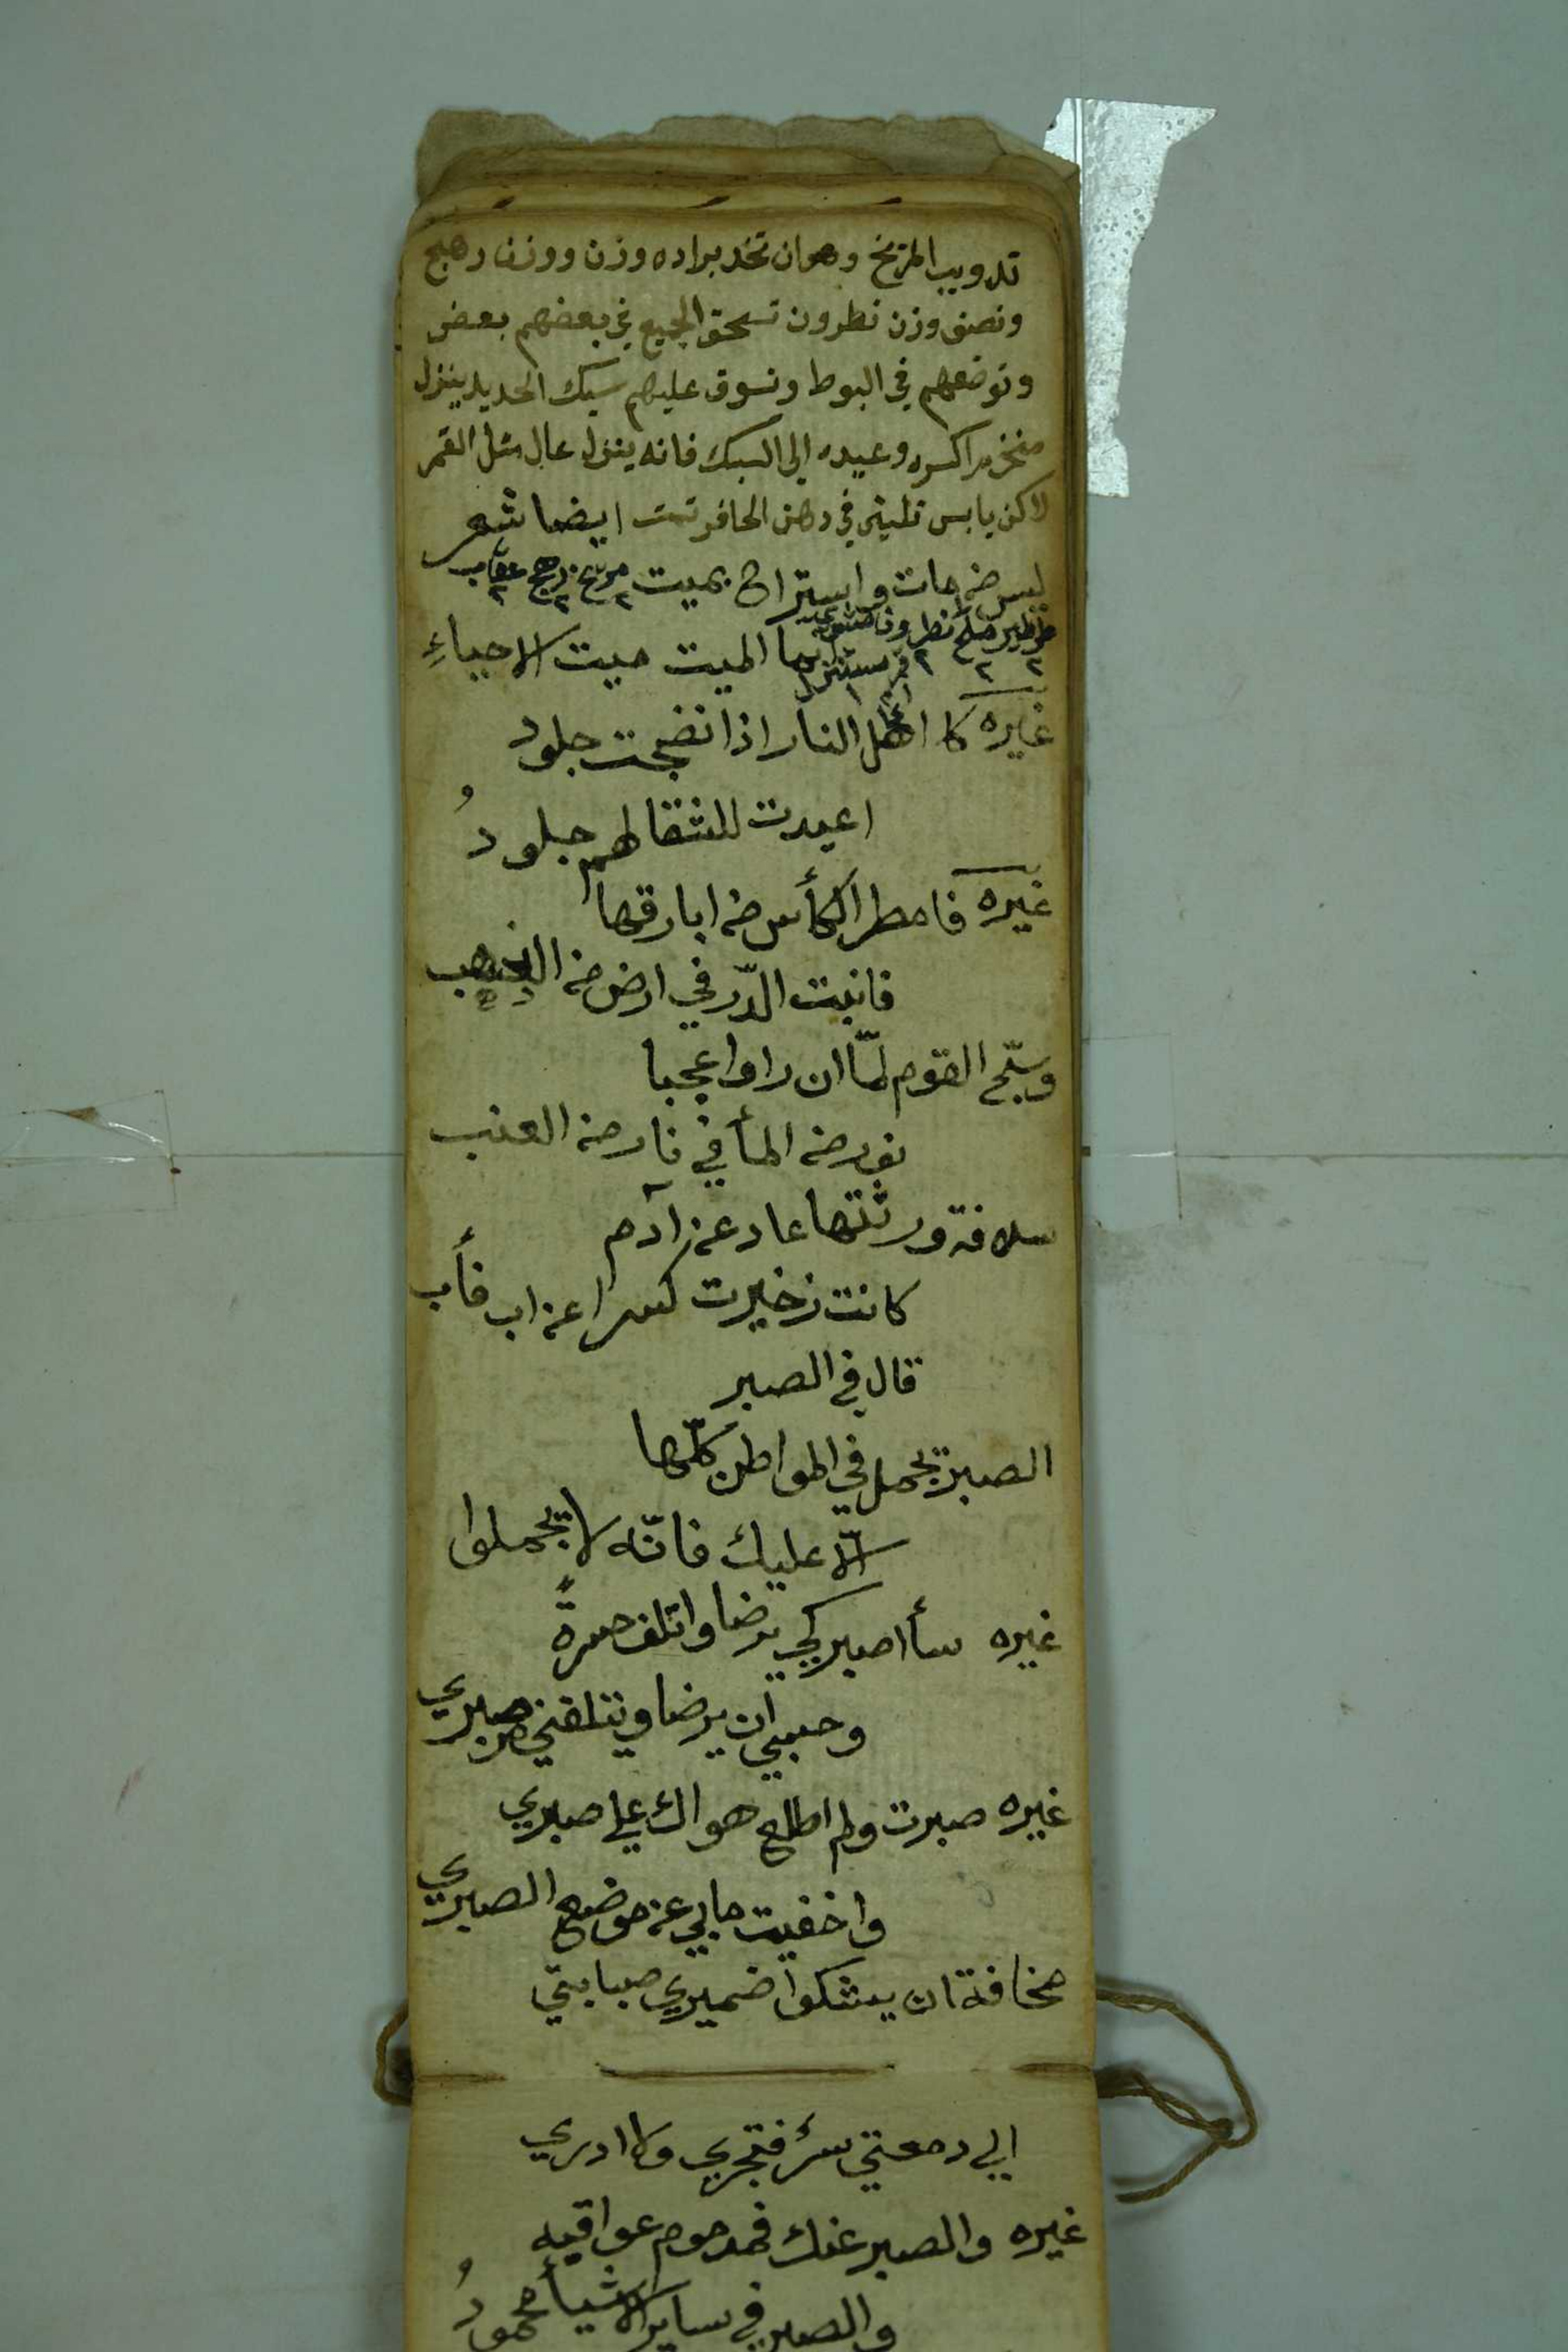 تدويب المريخ وهو ان تخد براده وزن ووزن رهج
ونصف وزن نطرون تسحق الجميع في بعضهم بعض
وتوضعهم في البوط وتسوق عليهم سبك الحديد ينزل
منخرم اكسره وعيده الى السبك فانه ينزل عال مثل القمر
لاكن يابس تلينه في دهن الحافر تمت ايضا شعر
ليس من مات واستراح بميت مريخ ٢ رهج ٢ عقاب ٢
طرطير ٢ ملح ٢ نطرون ٢
انما الميت ميت الاحياءِ
غيره كا اهل النار اذا نضجت جلود
اعيدت للشقا لهم جلودُ
غيره فامطر الكأس من ابارقها
فانبت الدّر في ارض من الذهب
وسبّح القوم لمّا ان راوا عجبا
نور من المأ في نار من العنب
سلافة ورثتها عاد عن آدم
كانت زخيرت كسرا عن اب فأب
قال في الصبر
الصبر يجمل في المواطن كلّها
الّا عليك فانّه لا يجملوا
غيره سأ اصبر كي يرضا واتلف حسرةً
وحسبي ان يرضا ويتلفني صبري
غيره صبرت ولم اطلع هواك على صبري
واخفيت مابي عن موضع الصبري
مخافة ان يشكوا ضميري صبابتي
الى دمعتي سرً فتجري ولا ادري
غيره والصبر عنك فمدموم عواقبه
والصبر في ساير الاشيأ محمودُ